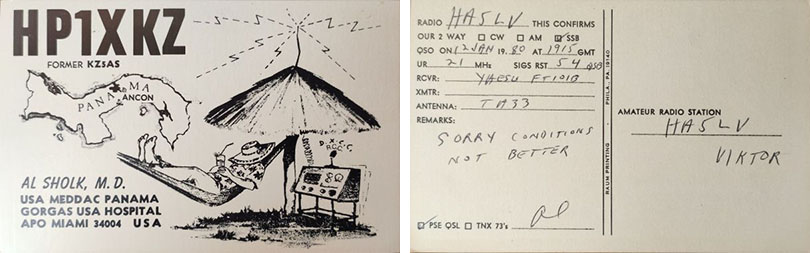 HP1XKZ
FORMER KZ5AS
PANAMA
ANCON
DXCC
RCC
AL SHOLK, M. D.
USA MEDDAC PANAMA
GORGAS USA HOSPITAL
APO MIAMI 34004 USA
RADIO HA5LV THIS CONFIRMS
OUR 2 WAY CW AM SSB
QSO ON 12 JAN 19.80 AT 1915 GMT
UR 21 MHz SIGS RST 54 QSB
RCVR: YAESU FT101B
XMTR:
ANTENNA: TA33
REMARKS:
SORRY CONDITIONS
NOT BETTER
PSE QSL TNX 73's Al
RAUM PRINTING - PHILA., PA. 19140
AMATEUR RADIO STATION
HA5LV
VIKTOR